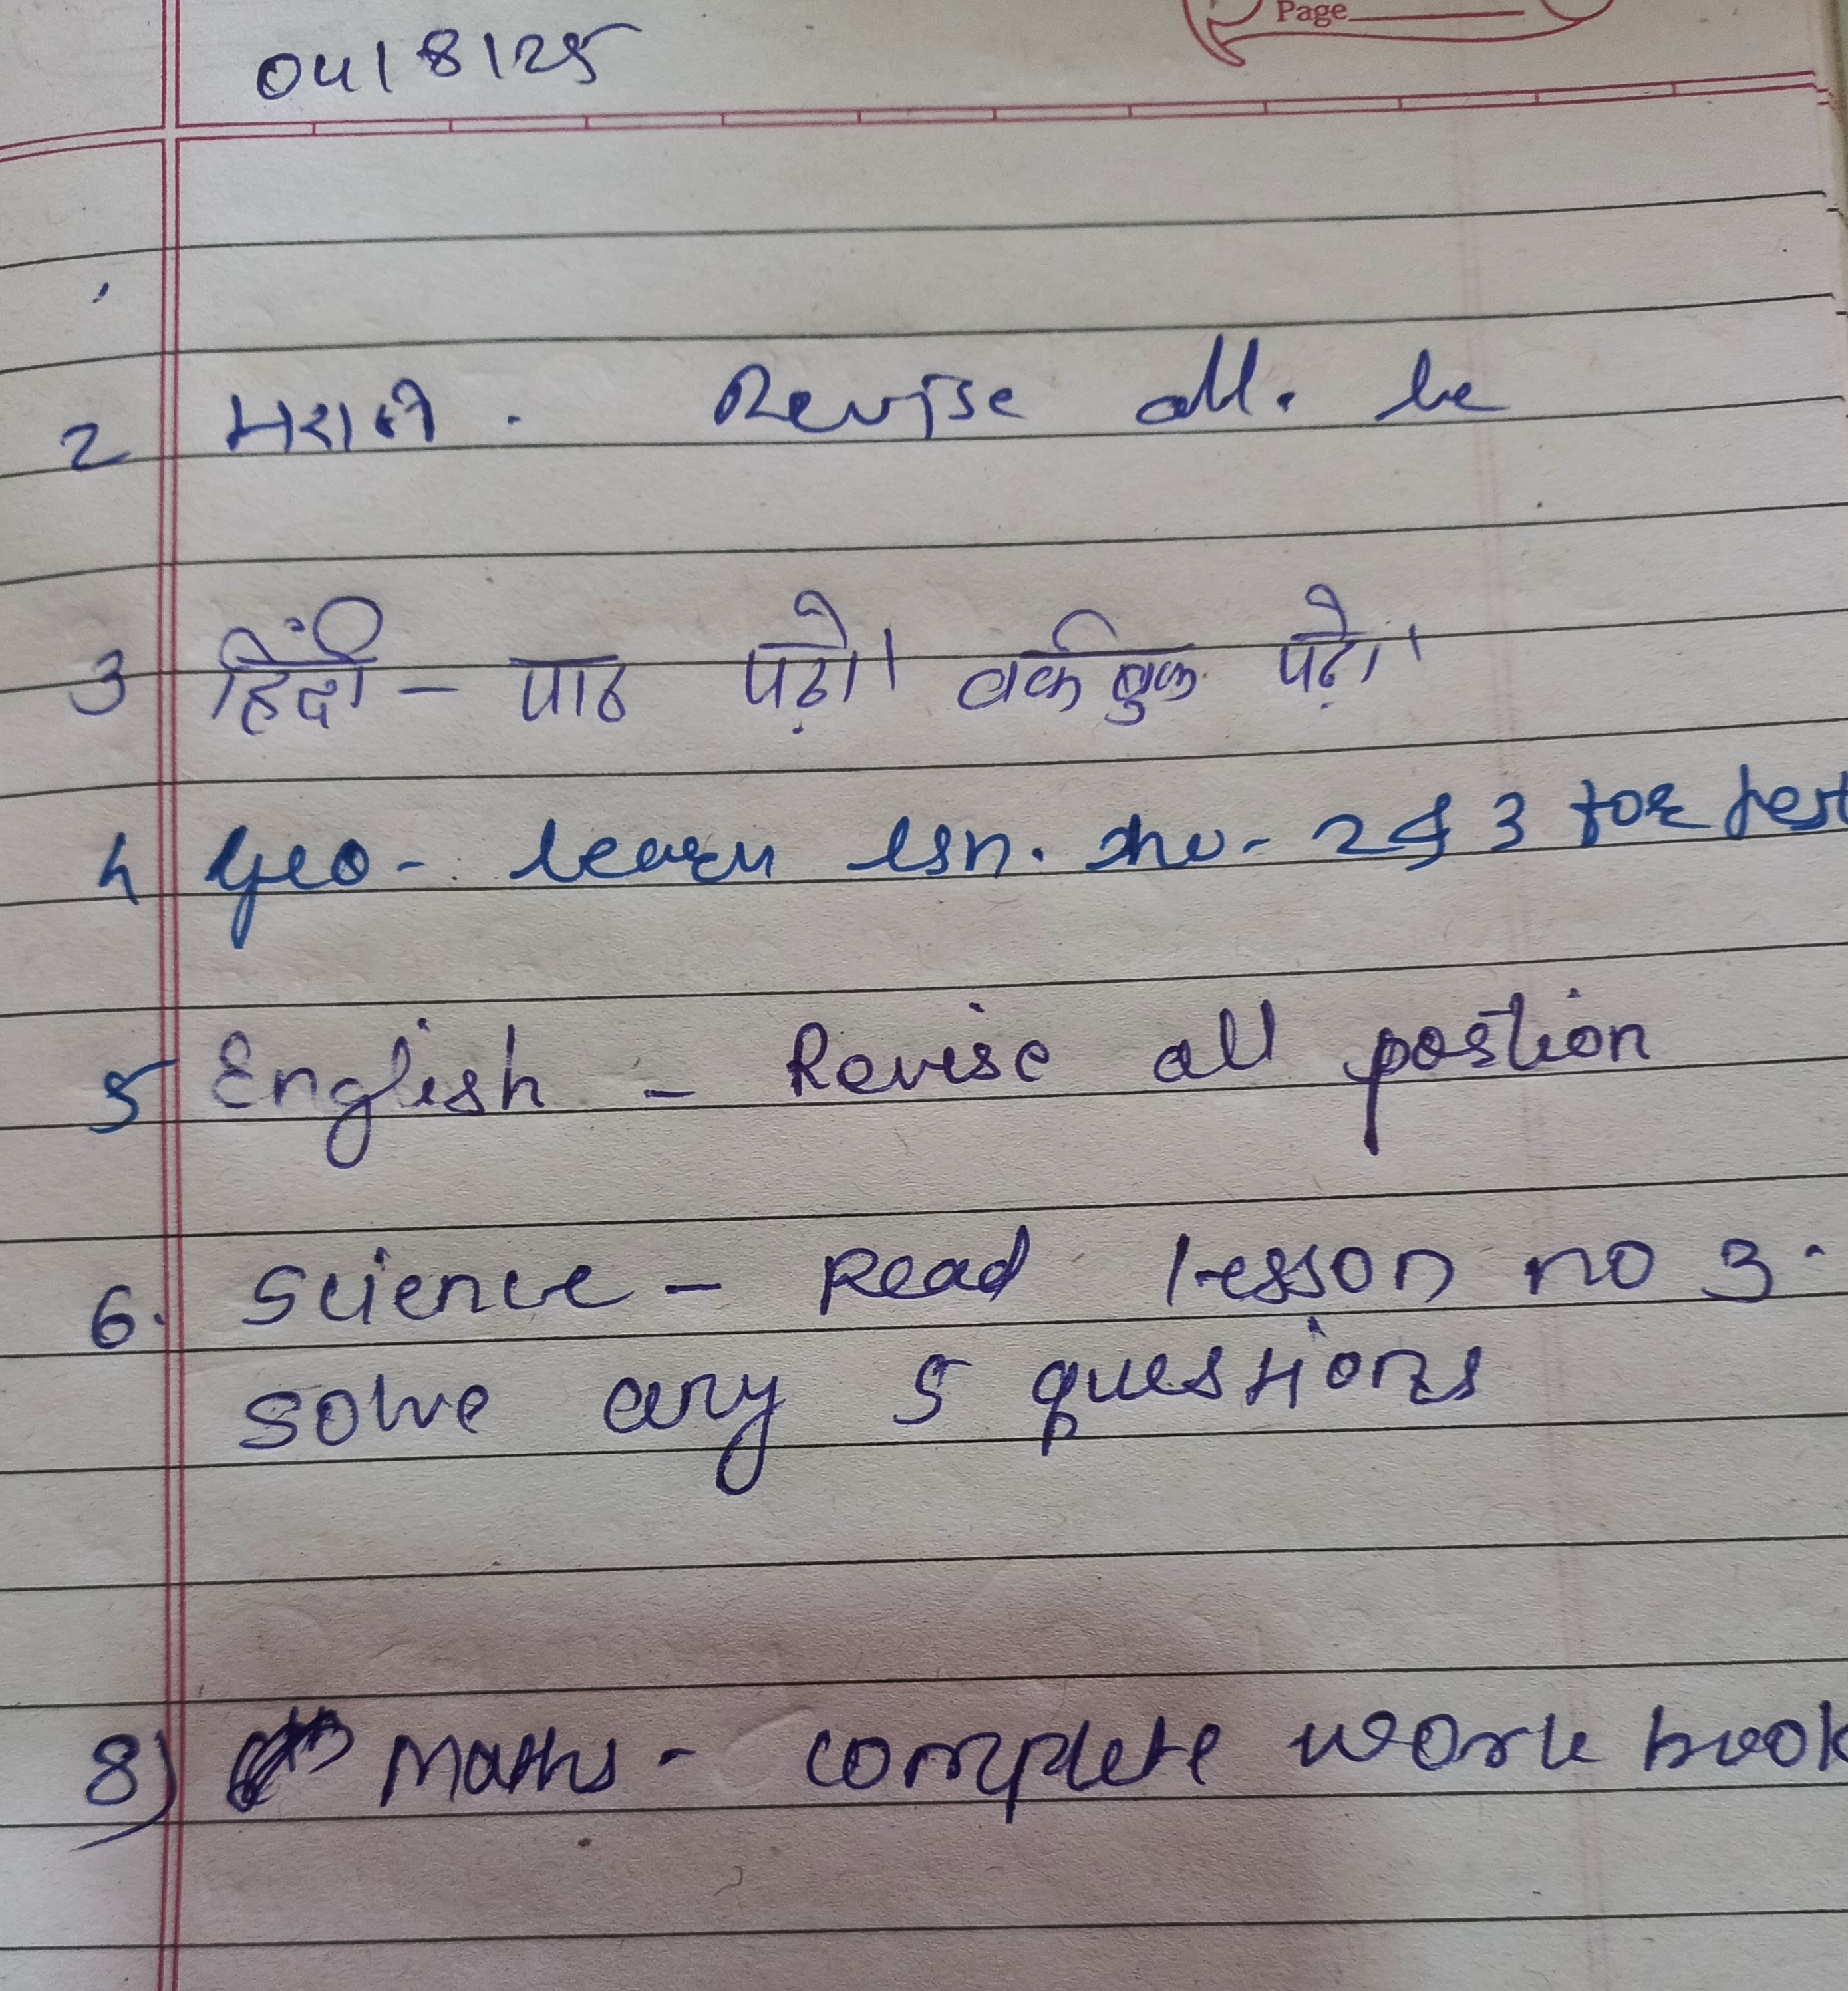 Page
04/8/25
2 मराठी . Revise all. be
3 हिंदी - पाठ पढ़ो। वर्कबुक पढ़ो।
4 Geo - learn lsn. no - 2 & 3 for test
5 English - Revise all postion
6. Science - Read lesson no 3.
solve any 5 questions
8) Maths - complete work book